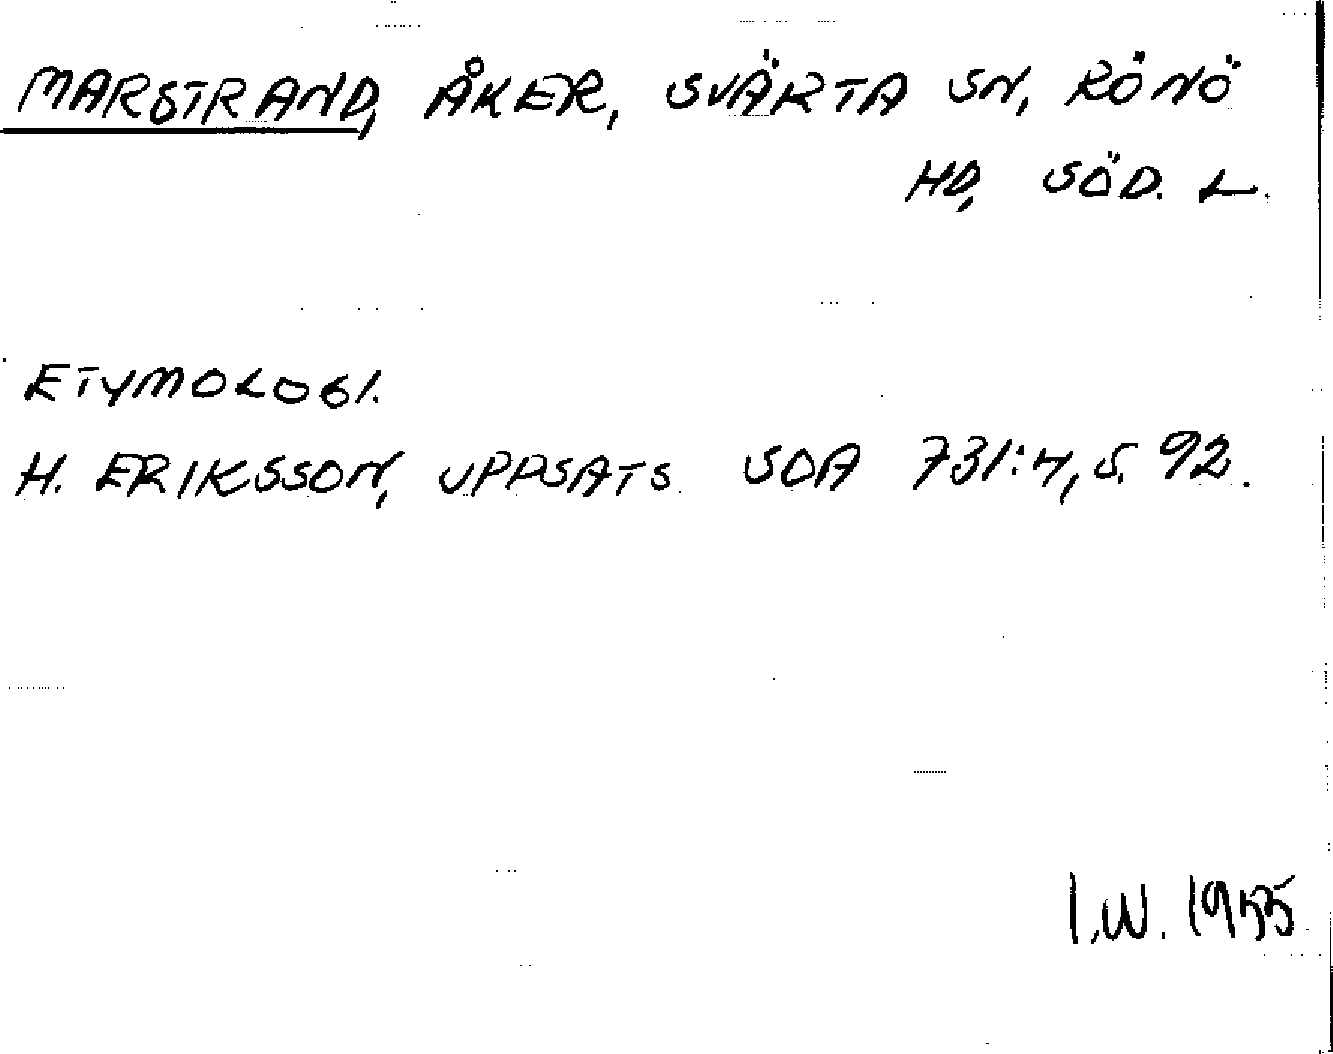 MARSTRAND, ÅKER, SVÄRTA SN, RÖNÖ
HD, SÖD. L.
ETYMOLOGI.
H. ERIKSSON, UPPSATS. SOA 731:4, S. 92.
I.W. 1955